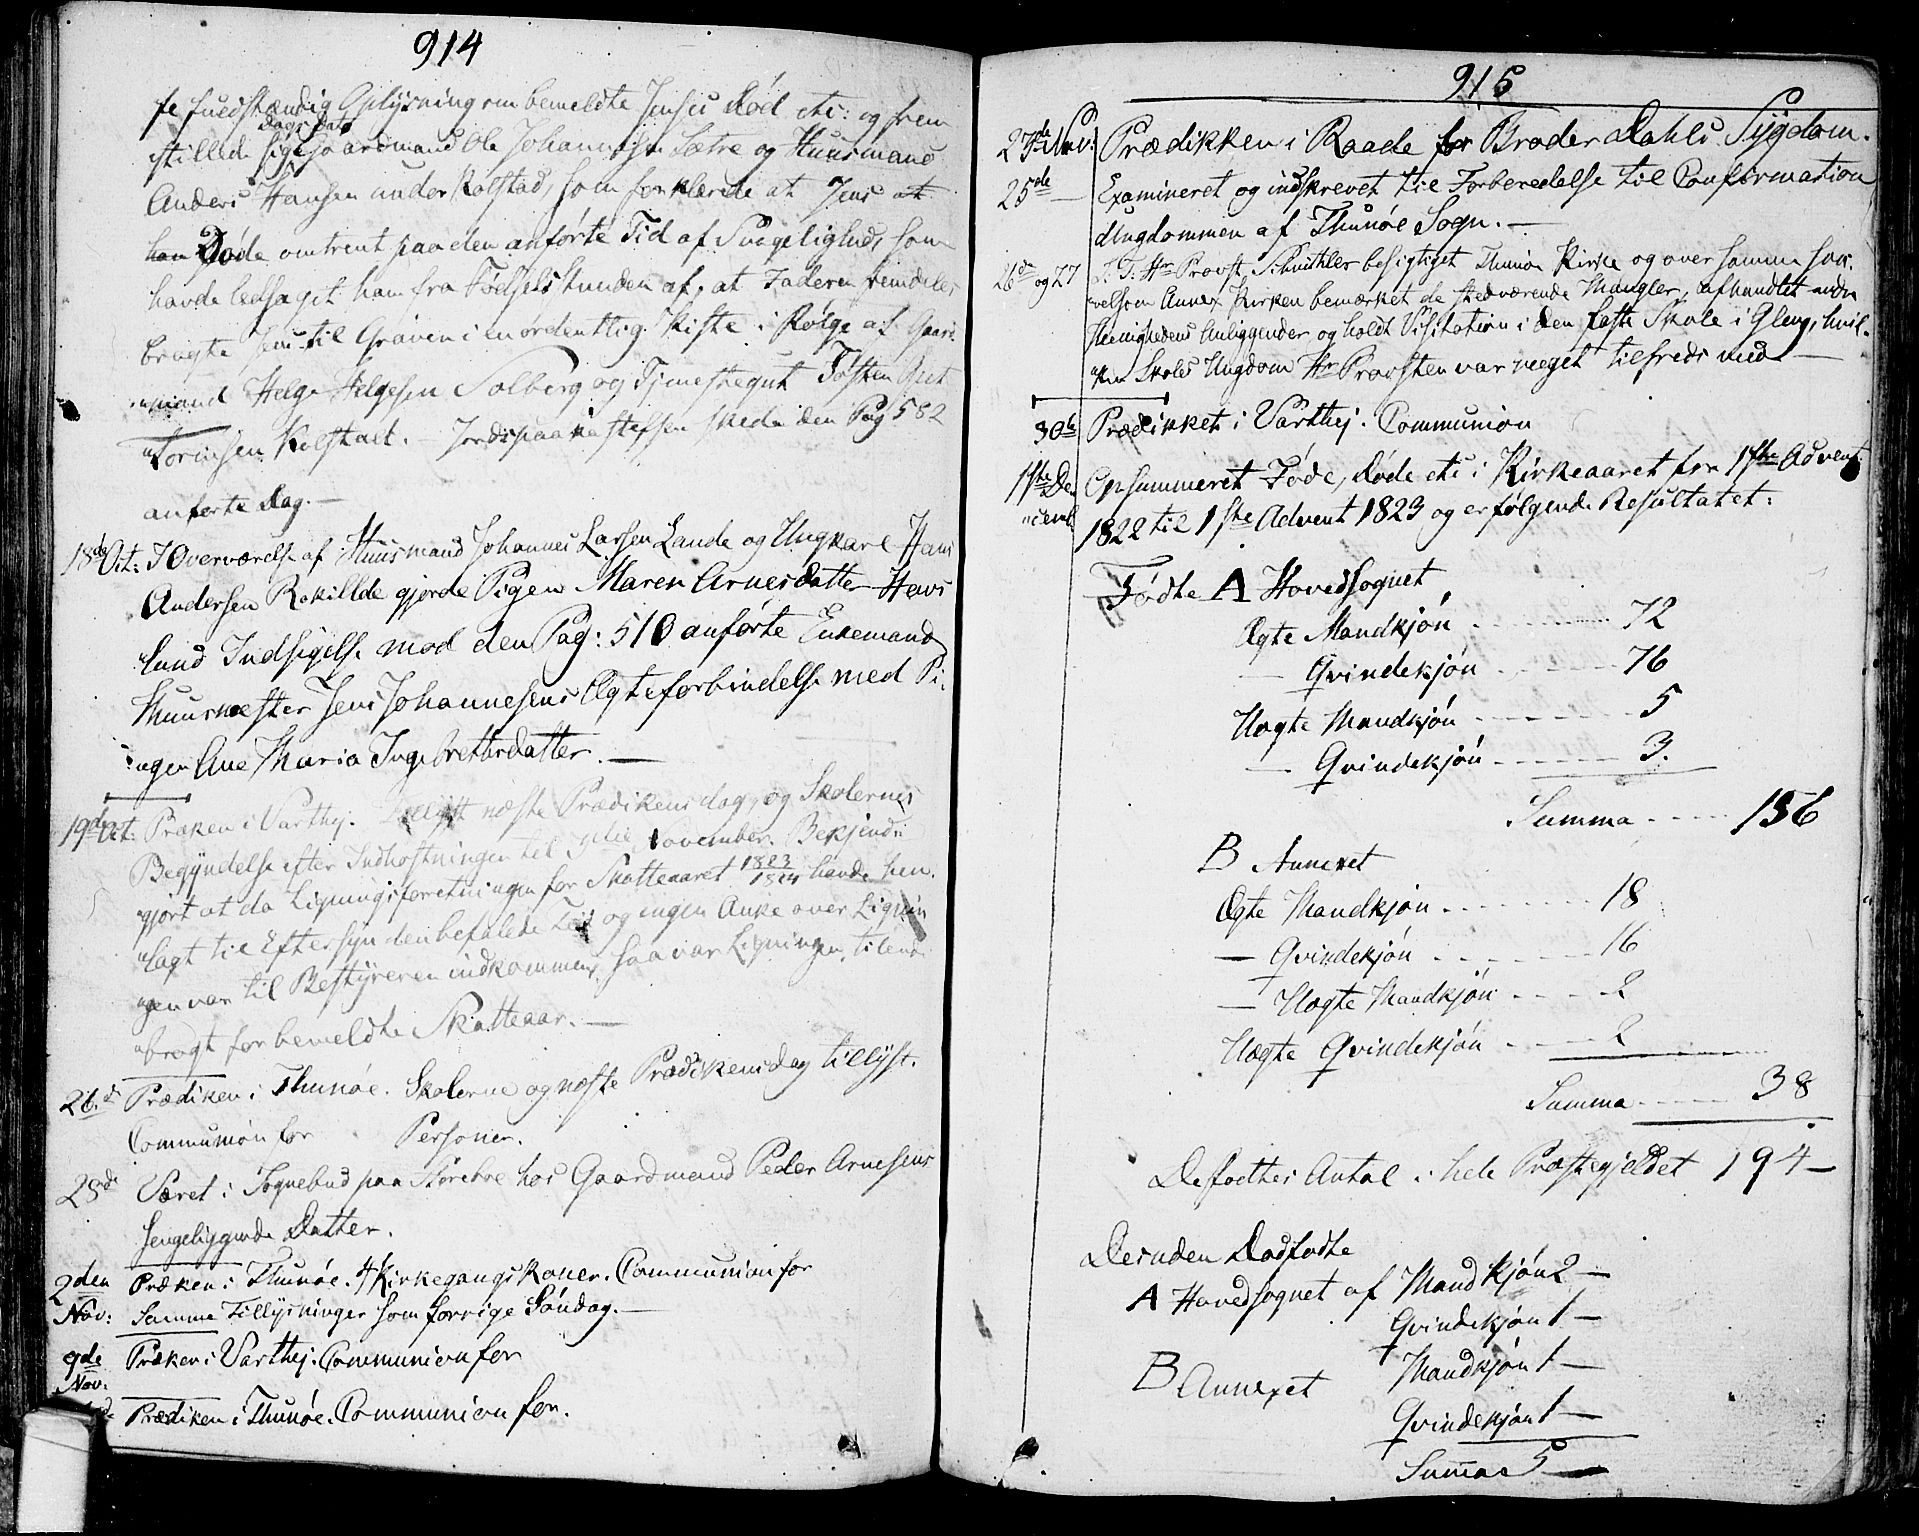 914
fuldstændig Oplysning om bemeldte Jenses Død etc: og frem
Dags Dato
stillede sig Gaardmand Ole Johannesen Sætre og Huusmand
Anders Hansen under Kolstad, som forklarede at Jens at
han Døde omtrent paa den anførte Tid af Svagelighed, som
havde ledsaget ham fra Fødsels Stunden af, at Faderen
bragte Jens til Graven i en ordentlig Kiste i Følge af Gaard
mand Helge Helgesen Solberg og Tjenestegut Tosten
Torinsen Kolstad. Jordspaakastelsen skede den Pag 582
anførte Dag. —
18de Oct: I Overværelse af Huusmand Johannes Larsen Lande og Ungkarl Hans
Andersen Rokillde gjorde Pigen Maren Arnesdatter Hevs
lund Indsigelse mod den Pag: 510 anførte Enkemand
Huusmester Jens Johannesens Ægteforbindelse med Pi
gen Ane Maria Ingebretsdatter. —
19de Oct: Præken i Varthej. Tillyst næste Prædikensdag og Skolernes
Begyndelse efter Indhøstningen til November. Bekjendt
gjort at da Ligningsforretningen for Skatteaaret 1823/1824 havde hen
lagt til Eftersyn den befalede Tid og ingen Anke over Lignin
gen var til Bestyreren indkommen, saa var Ligningen tilende
bragt for bemeldte Skatteaar. —
26.d Prædiken i Thunøe. Skolerne og næste Prædikensdag tillyst.
Communion for Personer.
28de Været i Sognebud paa Støreboe hos Gaardmand Peder Arnesens
sengeliggende Datter.
2den Præken i Thunøe. 4 Kirkegangskoner. Communion for
Nov: Samme Tillysninger som forrige Søndag. —
9de Præken i Varthej. Communion for
Nov.
Prædiken i Thunøe. Communion for.
915
23de Nov: Prædikken i Raade for Broder Dahls Sygdom.
25de — Examineret og indskrevet til Forberedelse til Confirmation
Ungdommen af Thunøe Sogn. —
26de og 27 S. T. Hr Provst besigtiget Thunøe Kirke og over samme saa
velsom Annex Kirken bemærket de stedværende Mangler, afhandlet andre
Menighedens Anliggender og holdt Visitation i den faste Skole i Gleng, hvil
ken Skoles Ungdom Hr Provsten var meget tilfreds med —
30te Prædikket i Varthej. Communion
1ste De Opsummeret Føde, Døde etc i Kirkeaaret fra 1ste Advent
cemb 1822 til 1ste Advent 1823 og er følgende Resultatet:
Fødte A Hovedsognet
Ægte Mandkjøn ......... 72
— Qvindekjøn ------ 76
Uægte Mandkjøn ------- 5
— Qvindekjøn ------ 3.
Summa ----- 156
B Annexet
Ægte Mandkjøn -------- 18
— Qvindekjøn ------- 16
— Uægte Mandkjøn ---- 2
Uægte Qvindekjøn ----- 2
Summa ----- 38
De fødtes Antal i hele Præstegjeldet 194 —
Desuden Dødfødte
A Hovedsognet af Mandkjøn 2 —
Qvindekjøn 1 —
B Annexet Mandkjøn 1 —
Qvindekjøn 1 —
Summa 5 —